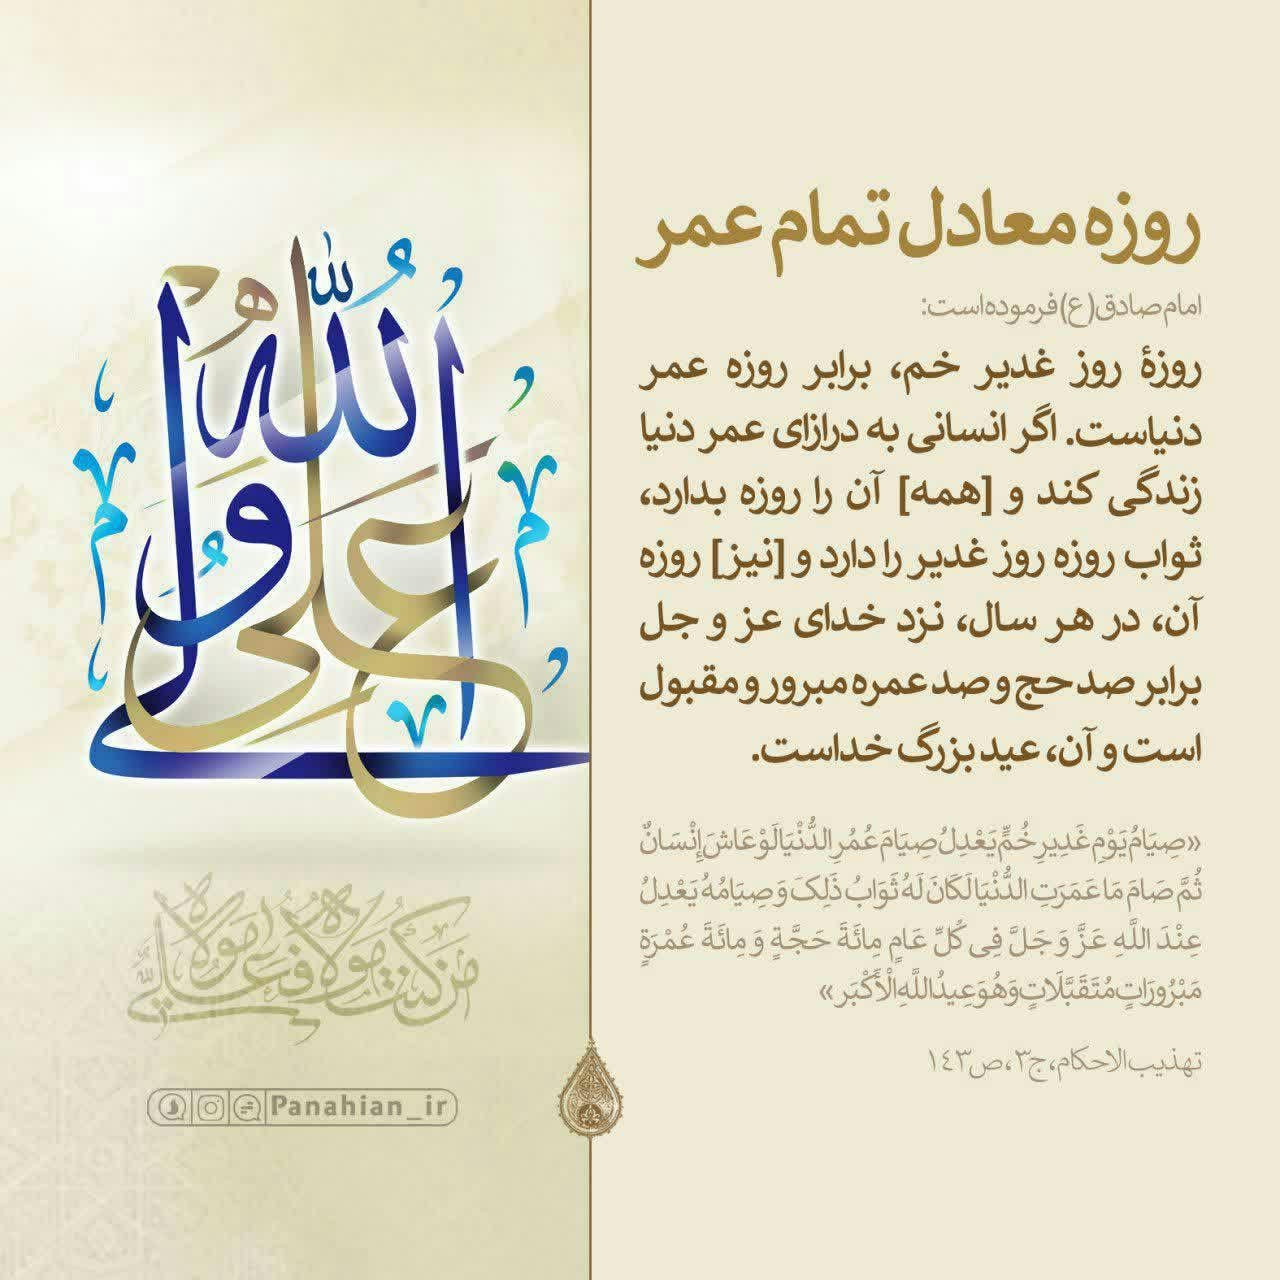 روزه معادل تمام عمر
امام صادق(ع) فرموده است:
روزهٔ روز غدیر خم، برابر روزه عمر
دنیاست. اگر انسانی به درازای عمر دنیا
زندگی کند و [همه] آن را روزه بدارد،
ثواب روزه روز غدیر را دارد و [نیز] روزه
آن، در هر سال، نزد خدای عز و جل
برابر صد حج و صد عمره مبرور و مقبول
است و آن، عید بزرگ خداست.
«صِیَامُ یَوْمِ غَدِیرِ خُمٍّ یَعْدِلُ صِیَامَ عُمُرِ الدُّنْیَا لَوْ عَاشَ إِنْسَانٌ
ثُمَّ صَامَ مَا عَمَرَتِ الدُّنْیَا لَکَانَ لَهُ ثَوَابُ ذَلِکَ وَ صِیَامُهُ یَعْدِلُ
عِنْدَ اللَّهِ عَزَّ وَ جَلَّ فِی کُلِّ عَامٍ مِائَةَ حَجَّةٍ وَ مِائَةَ عُمْرَةٍ
مَبْرُورَاتٍ مُتَقَبَّلَاتٍ وَ هُوَ عِیدُ اللَّهِ الْأَکْبَر»
تهذیب الاحکام، ج۳، ص۱۴۳
علی ولی الله
من کنت مولاه فهذا علی مولاه
Panahian_ir